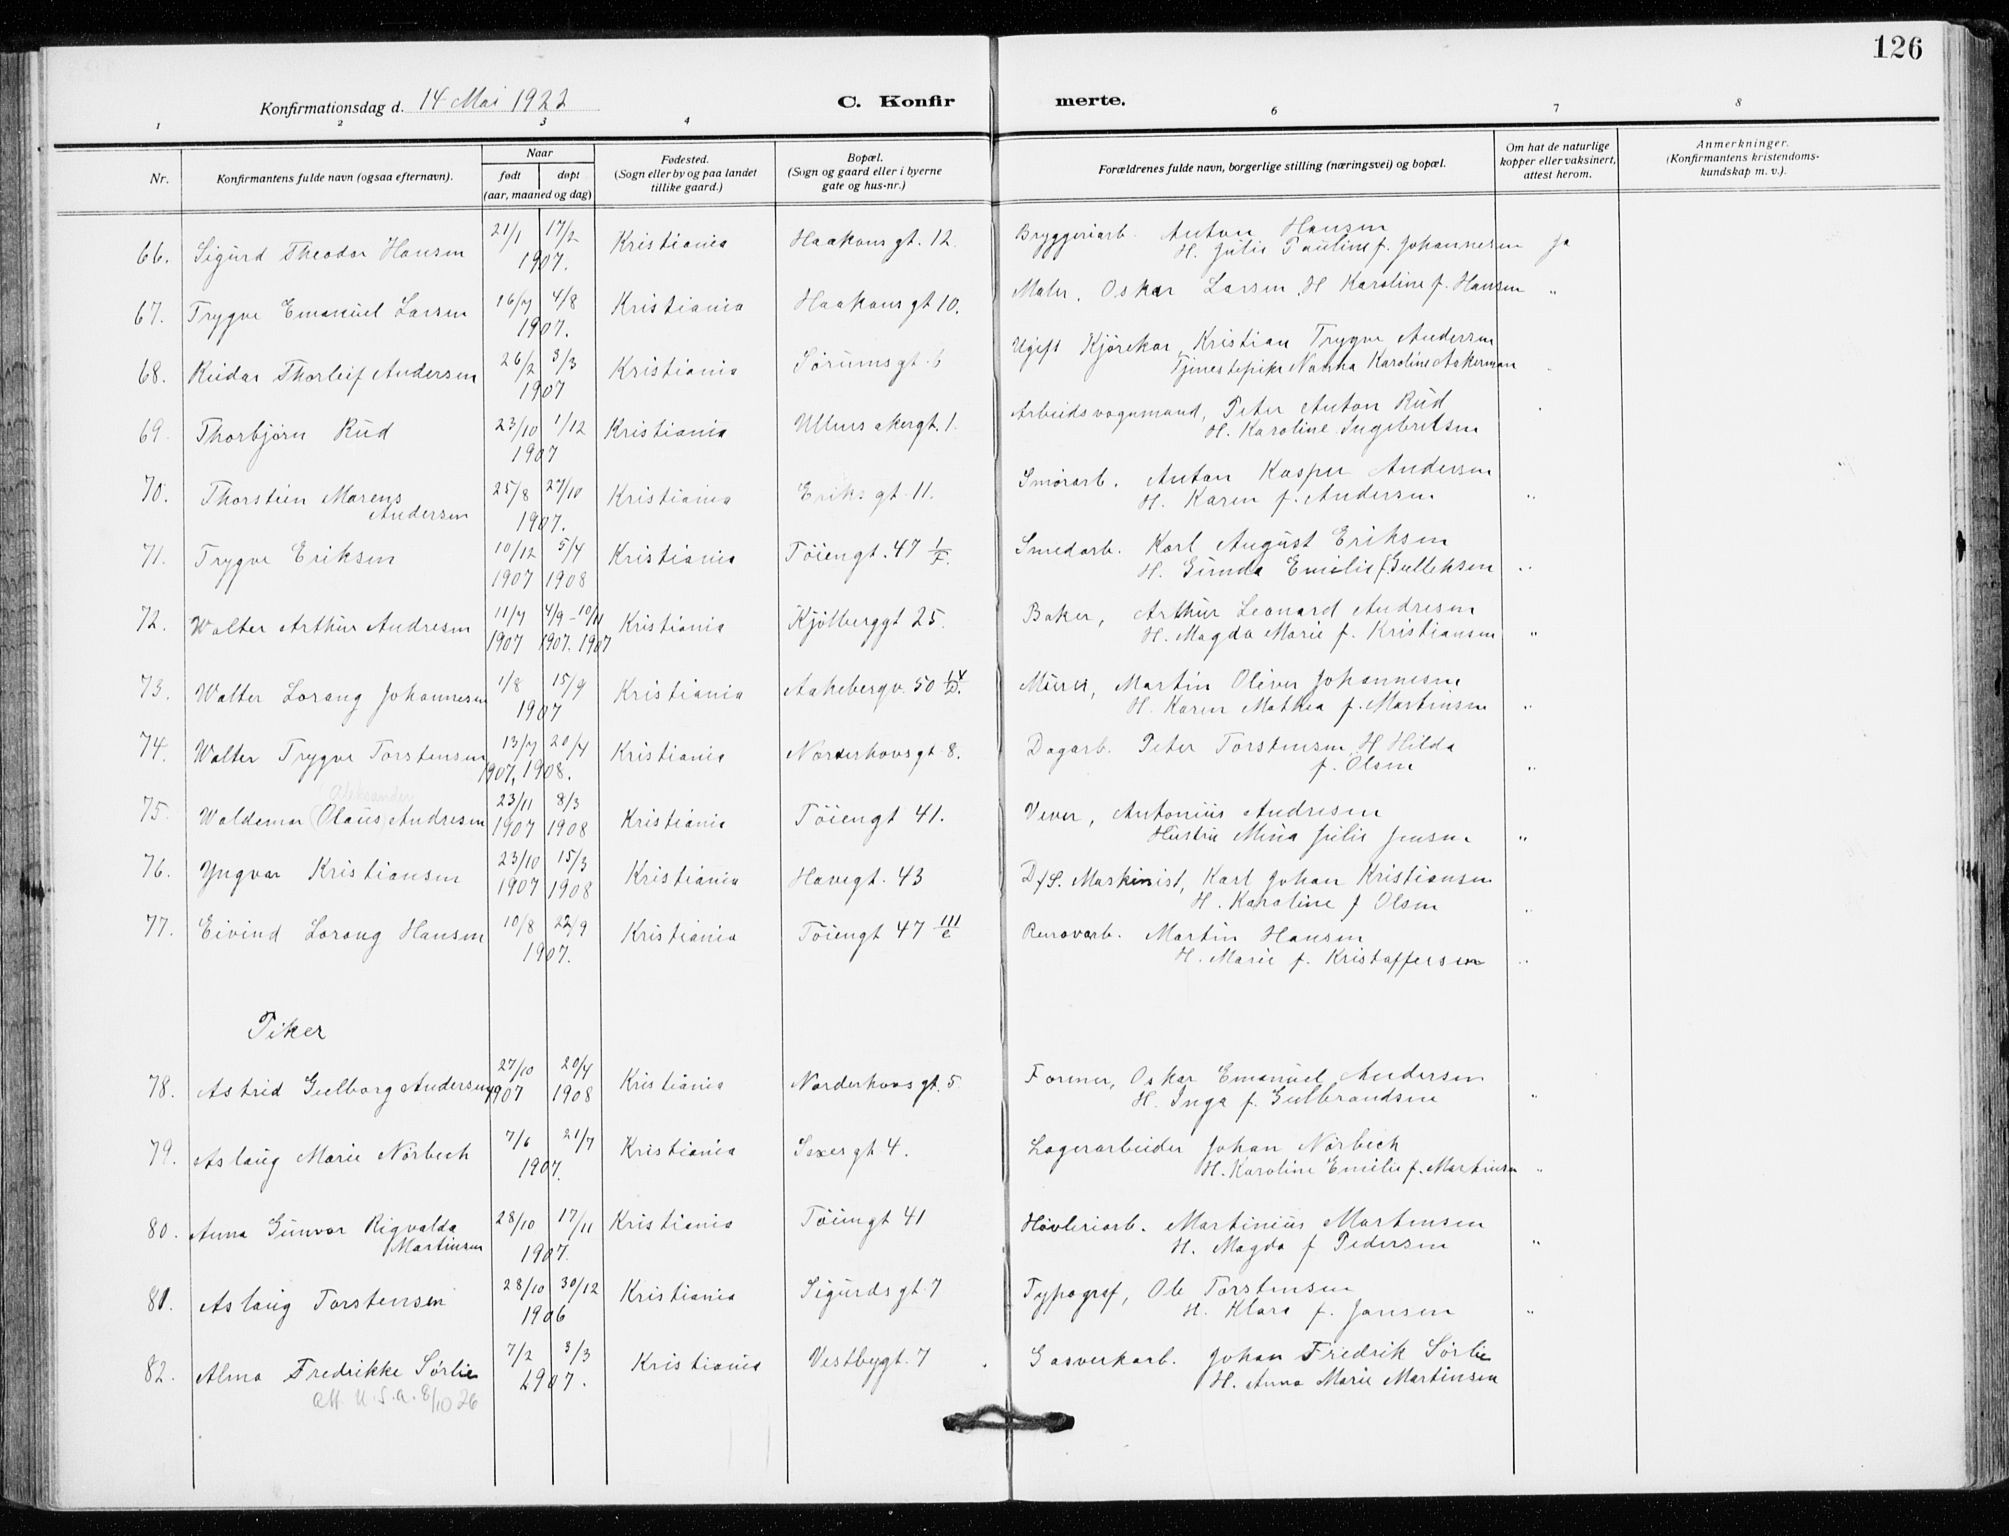 126
Konfirmationsdag d. 14 Mai 1922
C. Konfir merte.
1 2 3 4 6 7 8
Nr.
Konfirmantens fulde navn (ogsaa efternavn).
Naar
født døpt
(aar, maaned og dag)
Fødested.
(Sogn eller by og paa landet
tillike gaard.)
Bopæl.
(Sogn og gaard eller i byerne
gate og hus-nr.)
Forældrenes fulde navn, borgerlige stilling (næringsvei) og bopæl.
Om hat de naturlige
kopper eller vaksinert,
attest herom.
Anmerkninger.
(Konfirmantens kristendoms-
kundskap m. v.).
66. Sigurd Theodor Hansen 21/1 17/2 1907. Kristiania Haakons gt. 12. Bryggeriarb. Anton Hansen
H. Julie Pauline f. Johannesen ja
67. Trygve Emanuel Larsen 16/7 4/8 1907. Kristiania Haakons gt 10. Maler. Oskar Larsen. H Karoline f. Hansen "
68. Reidar Thorleif Andersen 26/2 3/3 1907 Kristiania Sørumsgt. 6 Ugift Kjørekar, Kristian Trygve Andersen
Tjenestepike Nanna Karoline Askerman
69. Thorbjørn Rud 23/10 1/12 1907 Kristiania Ullensakergt. 1. Arbeidsvognmand, Peter Anton Rud
H. Karoline Ingebretsen
70. Thorstein Marens
Andersen 25/8 27/10 1907. Kristiania Eriks gt. 11. Smørarb. Anton Kasper Andersen
H. Karen f. Andersen "
71. Trygve Eriksen 10/12 1907 5/4 1908 Kristiania Tøiengt. 47 1/F. Smedarb. Karl August Eriksen
H. Gunda Emilie f. Gulleksen "
72. Walter Arthur Andresen 11/7 1907 4/9 - 10/11 1907. 1907 Kristiania Kjølberggt 25. Baker, Arthur Leonard Andresen
H. Magda Marie f. Kristiansen "
73. Walter Lorang Johannesen 1/8 15/9 1907 Kristiania Aakebergv. 50 14/D. Murer, Martin Oliver Johannesen
H. Karen Mathea f. Martinsen "
74. Walter Trygve Torstensen 13/7 1907, 20/4 1908. Kristiania Norderhovsgt. 8. Dagarb. Peter Torstensen, H Hilda
f. Olsen "
Aleksander
75. Waldemar (Olaus) Andresen 23/11 1907 8/3 1908 Kristiania Tøiengt 41. Vever, Antonius Andresen
Hustru Mina Julie Jensen "
76. Yngvar Kristiansen 23/10 1907 15/3 1908 Kristiania Havegt. 43 D/S. Maskinist, Karl Johan Kristiansen
H. Karoline f Olsen "
77. Eivind Lorang Hansen 10/8 22/9 1907. Kristiania Tøiengt 47 III/e Renovarb. Martin Hansen
H. Marie f. Kristoffersen "
Piker
78. Astrid Gulborg Andersen 27/10 1907 20/4 1908 Kristiania Norderhovsgt. 5 Former, Oskar Emanuel Andersen
H. Inga f. Gulbrandsen "
79. Aslaug Marie Nørbech 7/6 21/7 1907. Kristiania Sexesgt 4. Lagerarbeider Johan Nørbech
H. Karoline Emilie f. Martinsen "
80. Anna Gunvor Rigvalda
Martinsen 28/10 17/11 1907. Kristiania Tøiengt 41 Høvleriarb. Martinius Martinsen
H. Magda f Pedersen "
81. Aslaug Torstensen 28/10 30/12 1906 Kristiania Sigurdsgt. 7 Typograf, Ole Torstensen
H. Klara f. Jansen "
82. Alma Fredrikke Sørlie 7/2 3/3 1907. Kristiania Vestbygt. 7 Gasverkarb. Johan Fredrik Sørlie
H. Anna Marie Martinsen
Att. U.S.A. 8/10 26